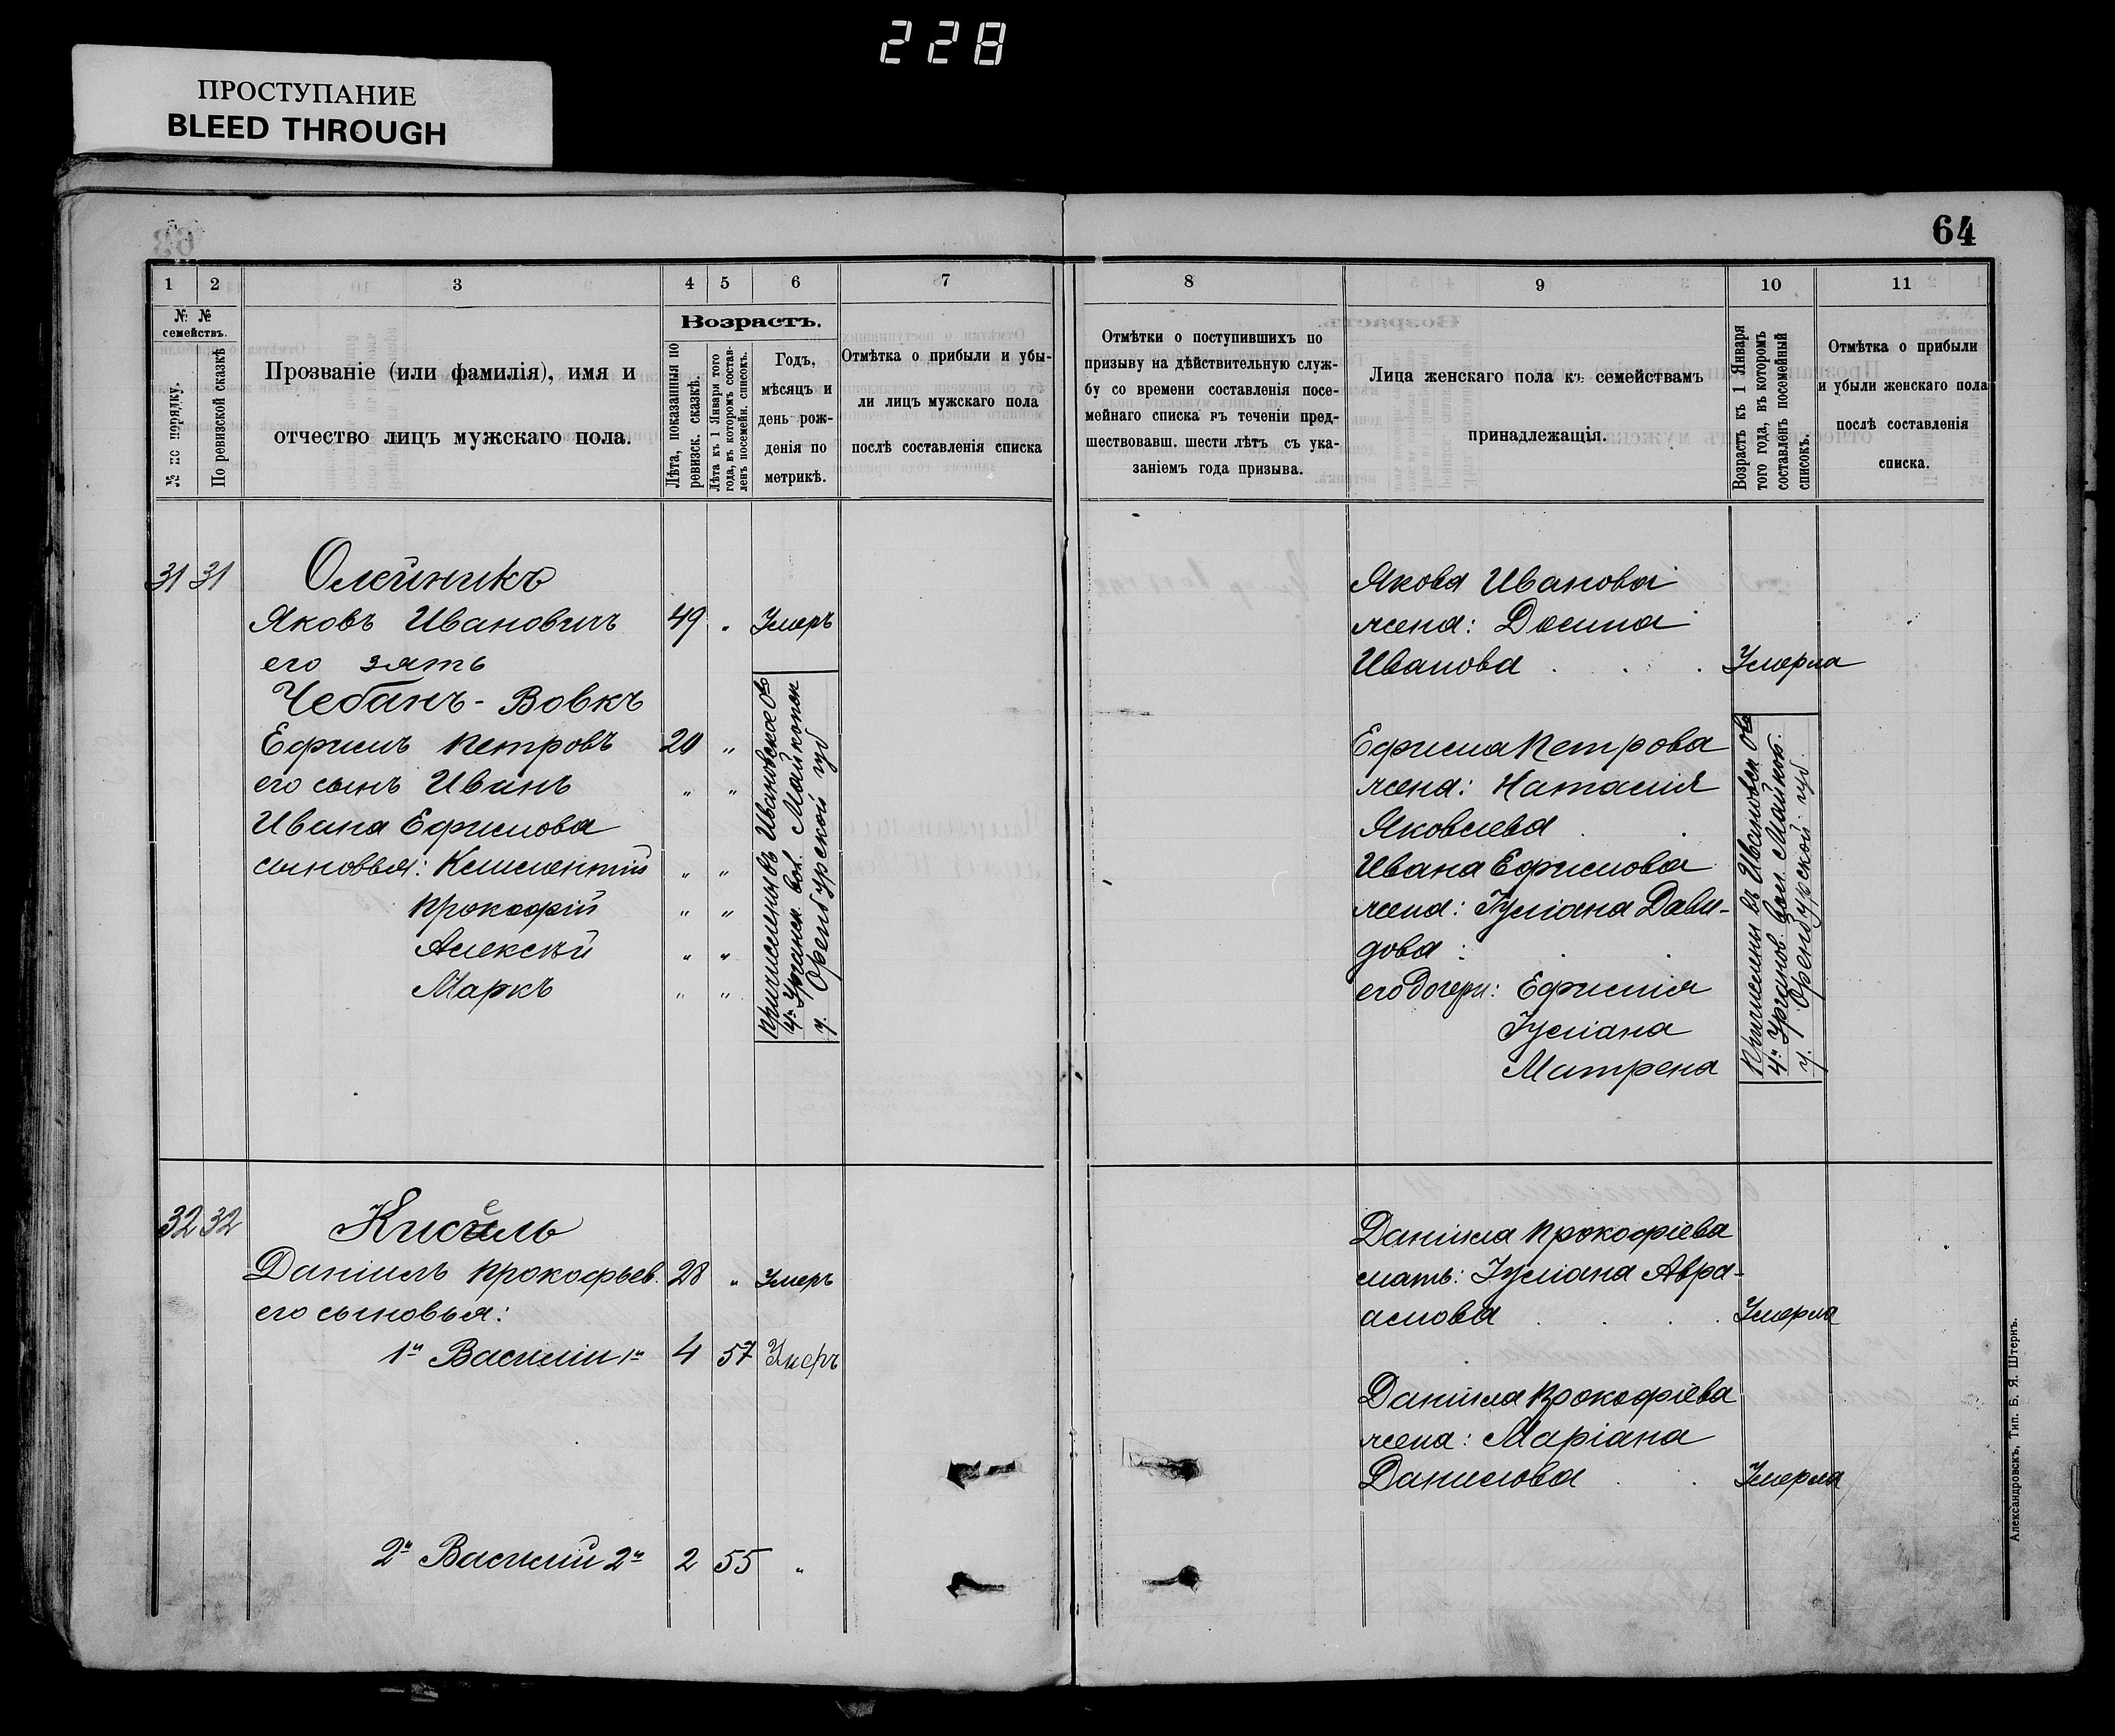 228
ПРОСТУПАНИЕ
BLEED THROUGH
64
1 2 3 4 5 6 7 8 9 10 11
№ № семействъ.
№ по порядку.
По ревизской сказкѣ
Прозваніе (или фамилія), имя и
отчество лицъ мужскаго пола.
Возрастъ.
Лѣта, показанныя по
ревизск. сказкѣ.
Лѣта къ 1 Января того
года, въ которомъ состав-
ленъ посемейн. списокъ.
Годъ,
мѣсяцъ и
день рож-
денія по
метрикѣ.
Отмѣтка о прибыли и убы-
ли лицъ мужскаго пола
послѣ составленія списка
Отмѣтки о поступившихъ по
призыву на дѣйствительную служ-
бу со времени составленія посе-
мейнаго списка въ теченіи пред-
шествовавш. шести лѣтъ съ ука-
заніемъ года призыва.
Лица женскаго пола къ семействамъ
принадлежащія.
Возрастъ къ 1 Января
того года, въ которомъ
составленъ посемейный
списокъ.
Отмѣтка о прибыли
и убыли женскаго пола
послѣ составленія
списка.
31 31 Олейникъ
Яковъ Ивановичъ 49 " Умеръ
его зять
Чебанъ-Вовкъ
Ефимъ Петровъ 20 "
его сынъ Иванъ " "
Ивана Ефимова
сыновья: Климентій " "
Прокофій " "
Алексѣй " "
Маркъ " "
Причислены въ Ивановское Об
4й Урганск. вол. Майкопск
у. Оренбурской губ
Якова Иванова
жена: Домна
Иванова Умерла
Ефима Петрова
жена: Наталія
Яковлева
Ивана Ефимова
жена: Іуліана Дави-
дова :
его дочери: Ефимія
Іуліана
Матрена
Причислены въ Ивановск. Об
4й Урганов. вол. Майкоп.
у. Оренбурской губ
32 32 Кисель
Даніилъ Прокофьев. 28 " Умеръ
его сыновья:
1й Василій 1й 4 57 Умеръ
2й Василій 2й 2 55 "
Даніила Прокофіева
мать: Іуліана Авра-
амова Умерла
Даніила Прокофіева
жена: Маріана
Данилова Умерла
Александровскъ, Тип. Б. Я. Штернъ.